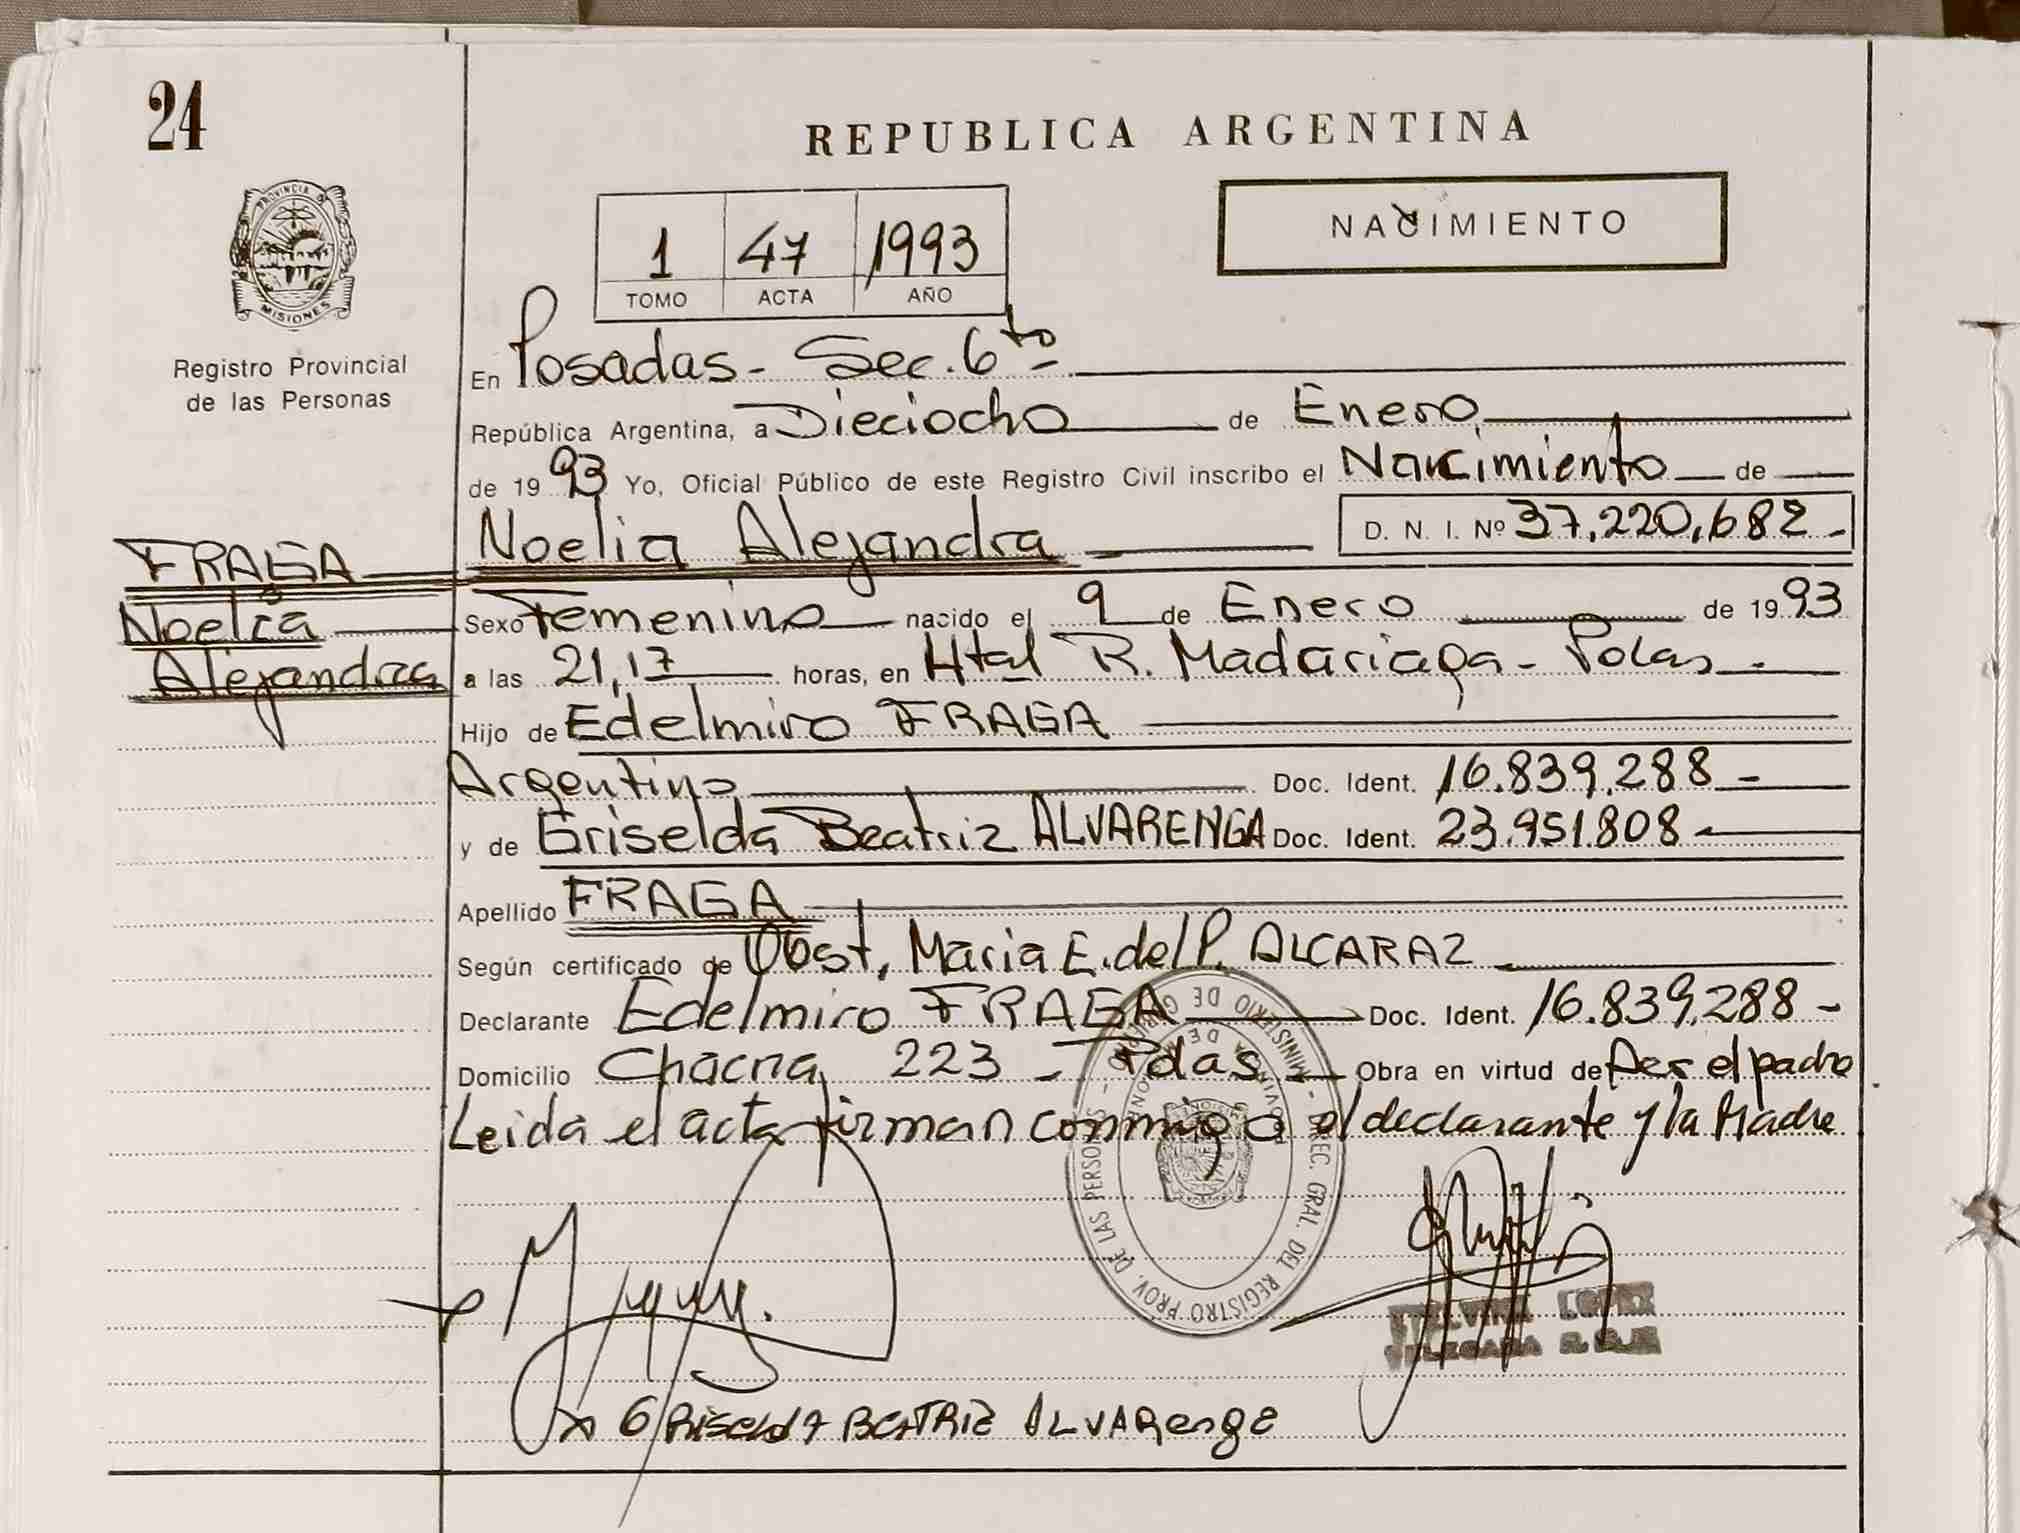 24
REPUBLICA ARGENTINA
PROVINCIA DE
MISIONES
Registro Provincial
de las Personas
1 47 1993
TOMO ACTA AÑO
NACIMIENTO
En Posadas - Sec. 6to -
República Argentina, a Dieciocho de Enero
de 19 93 Yo, Oficial Público de este Registro Civil inscribo el Nacimiento de
FRAGA
Noelia
Alejandra
Noelia Alejandra D. N. I. Nº 37.220.682 -
Sexo Femenino nacido el 9 de Enero de 19 93
a las 21,17 horas, en Htal R. Madariaga - Pdas -
Hijo de Edelmiro FRAGA
Argentino Doc. Ident. 16.839.288 -
y de Griselda Beatriz ALVARENGA Doc. Ident. 23.951.808 -
Apellido FRAGA
Según certificado de Obst. Maria E. del P. ALCARAZ
Declarante Edelmiro FRAGA Doc. Ident. 16.839.288 -
Domicilio Chacra 223 - Pdas - Obra en virtud de ser el padre
Leida el acta firman conmigo el declarante y la Madre
MINISTERIO DE GOBIERNO - DIREC. GRAL. DEL REGISTRO PROV. DE LAS PERSONAS
GRISELDA BEATRIZ ALVARENGA
LOPEZ
DELEGADA